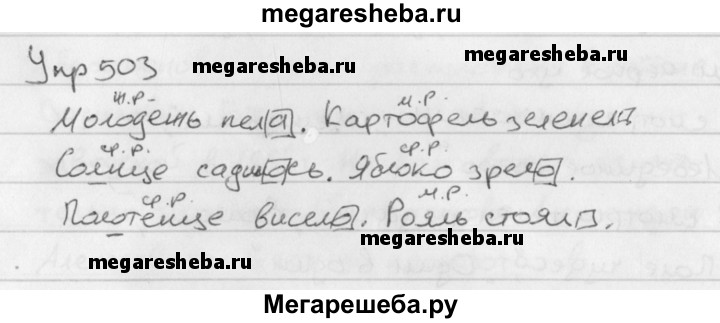 megaresheba.ru
Упр 503 megaresheba.ru
ж.р. м.р.
Молодежь пела. Картофель зеленел
ср.р. ср.р.
Солнце садилось. Яблоко зрело.
ср.р. м.р.
Полотенце висело. Рояль стоял.
megaresheba.ru
megaresheba.ru
Мегарешеба.ру